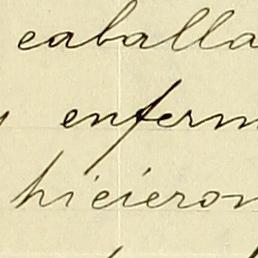 caballa
enferm
hicieron